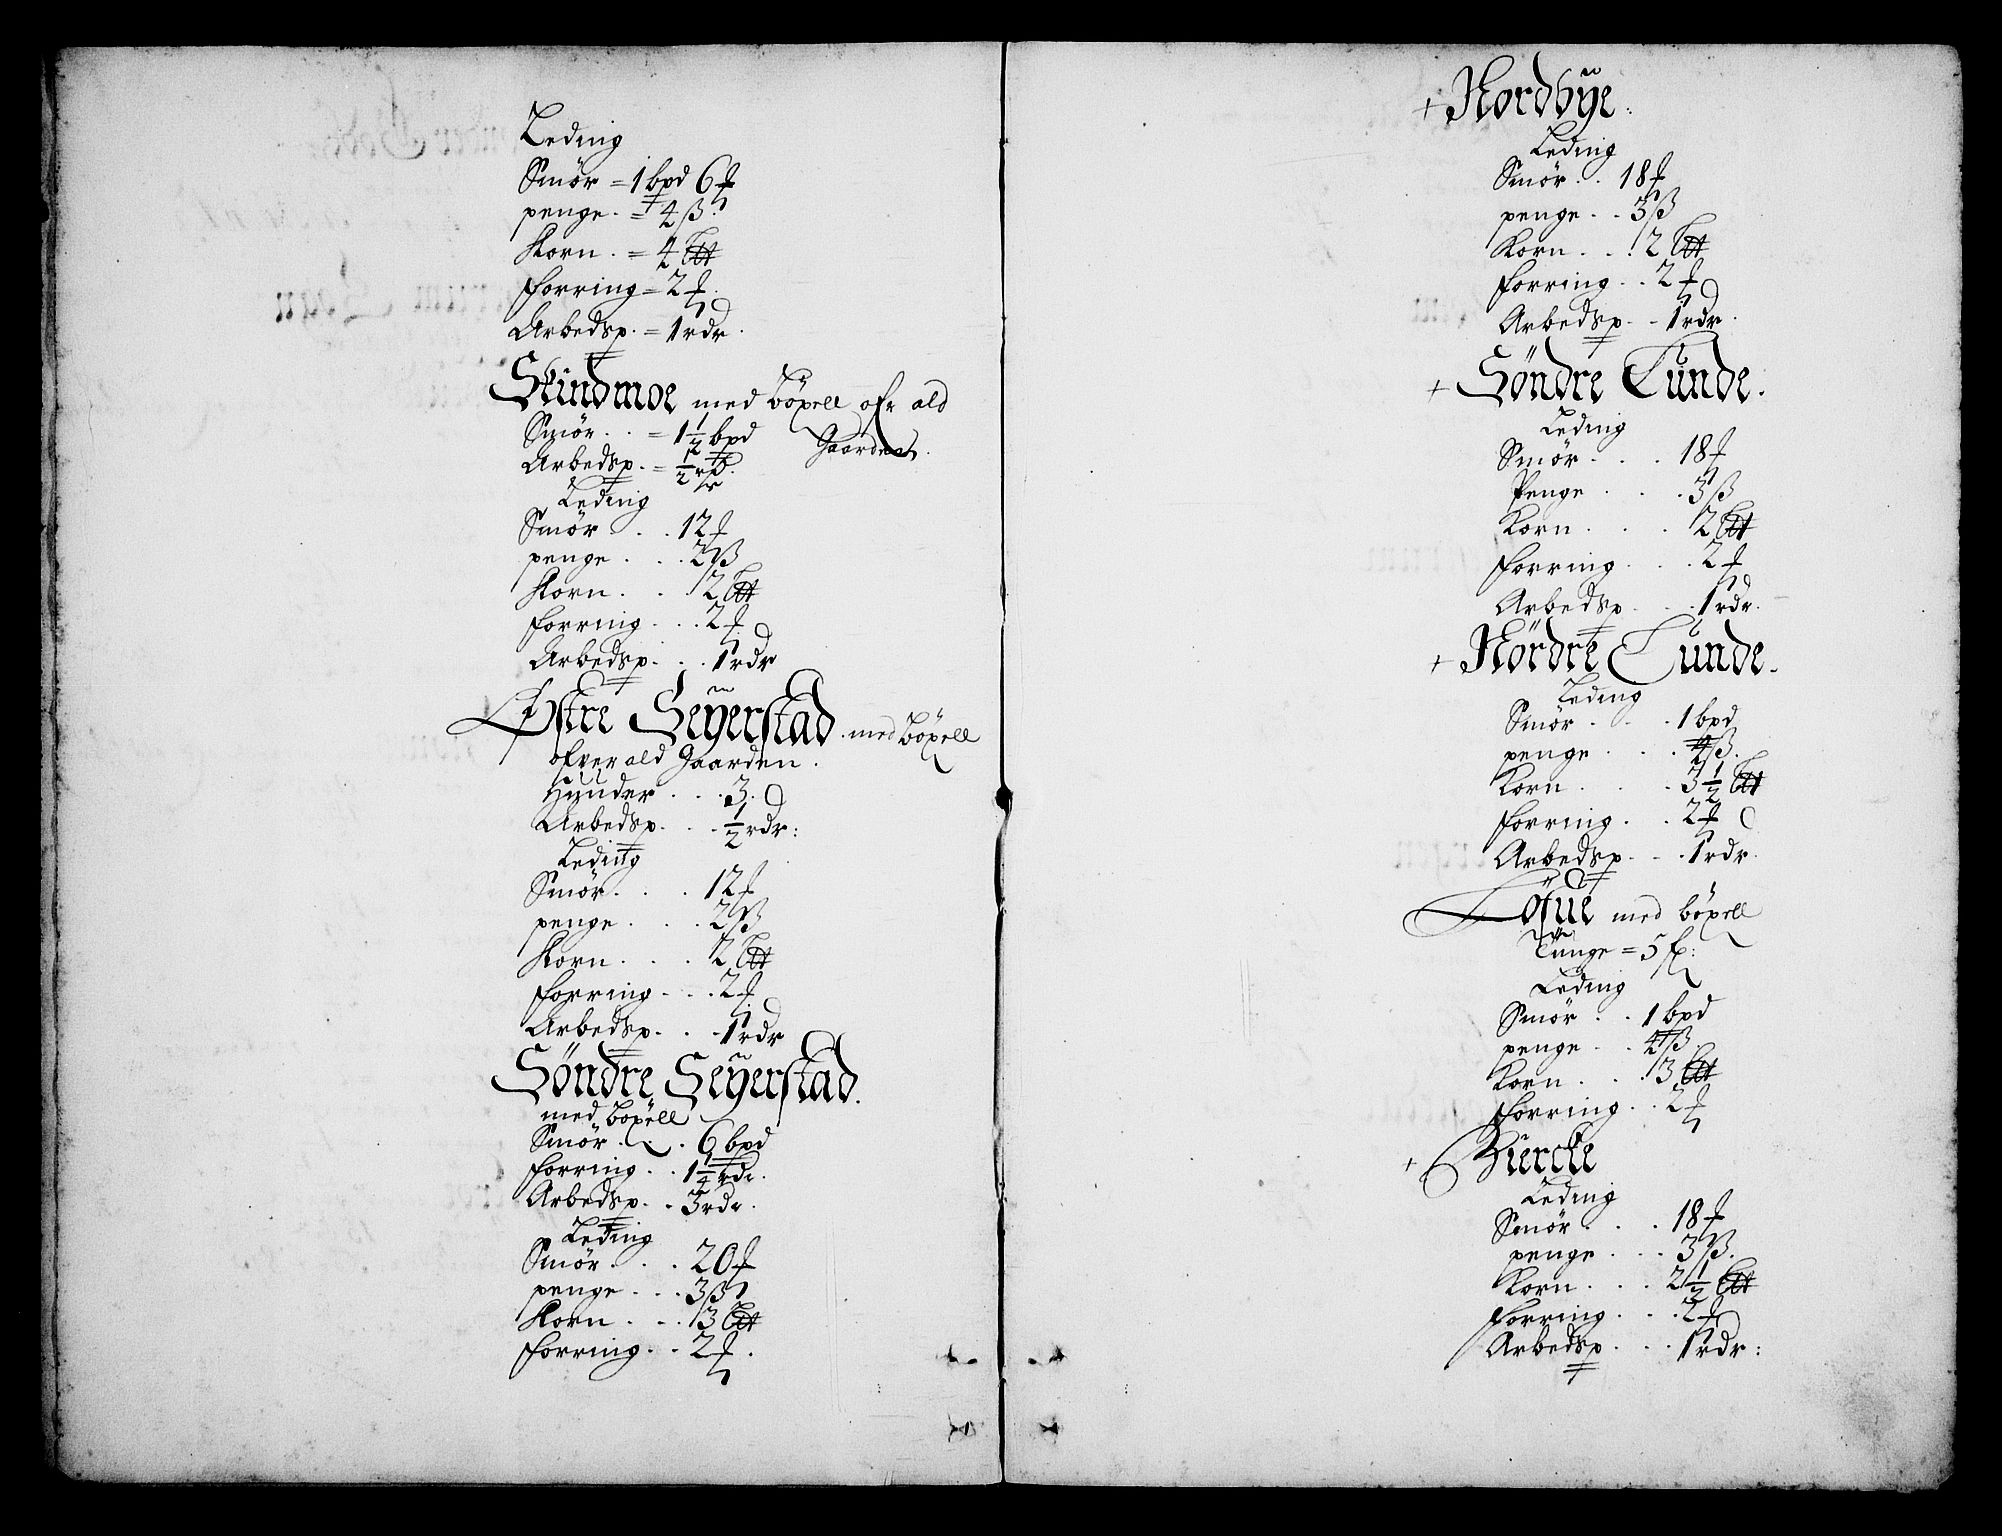 Leding
Smör = 1 bpd 6 ℔
penge. = 4 ß
Korn. = 4 Ltt
forring = 2 ℔
Arbedsp. = 1 rdr.
Skindmoe med böxell ofr ald
Gaarden.
Smör. . = 1½ bpd
Arbedsp. = ½ rdr
Leding
Smör . . 12 ℔
penge. . . 2 ß
Korn. . . 2 Ltt
forring. . . 2 ℔
Arbedsp. . . 1 rdr
Östre Seÿerstad. med böxell
ofver ald Gaarden.
Huuder . . . 3.
Arbedsp. . . ½ rdr:
Leding
Smör. . . 12 ℔
penge. . . 2 ß
Korn. . . 2 Ltt
forring. . . 2 ℔
Arbedsp. . . 1 rdr
Söndre Seÿerstad.
med böxell
Smör. . . 6 bpd
forring. . 1¼ rdr.
Arbedsp. . 3 rdr.
Leding
Smör. . . 20 ℔
penge. . . 3 ß
Korn. . . 3 Ltt
forring. . 2 ℔.
+ Nordbÿe:
Leding
Smör. . 18 ℔
penge. . 3 ß
Korn. . . 2 Ltt
forring. . 2 ℔
Arbedsp. . 1 rdr.
+ Söndre Tunde.
Leding
Smör. . . 18 ℔
Penge . . . 3 ß
Korn. . . 2 Ltt
forring. . . 2 ℔
Arbedsp. . . 1 rdr.
+ Nördre Tunde.
Leding
Smör. . . 1 bpd
penge . . . 4 ß.
Korn. . . 3½ Ltt
forring. . 2 ℔
Arbedsp. . . 1 rdr.
Löfue med böxell
Tunge = 5 f:
Leding
Smör. . 1 bpd
penge. . 4 ß
Korn. . . 3 Ltt
forring. . 2 ℔
+ Biercke
Leding
Smör. . . 18 ℔
penge. . . 3 ß.
Korn. . . 2½ Ltt
forring. . . 2 ℔
Arbedsp. . . 1 rdr: